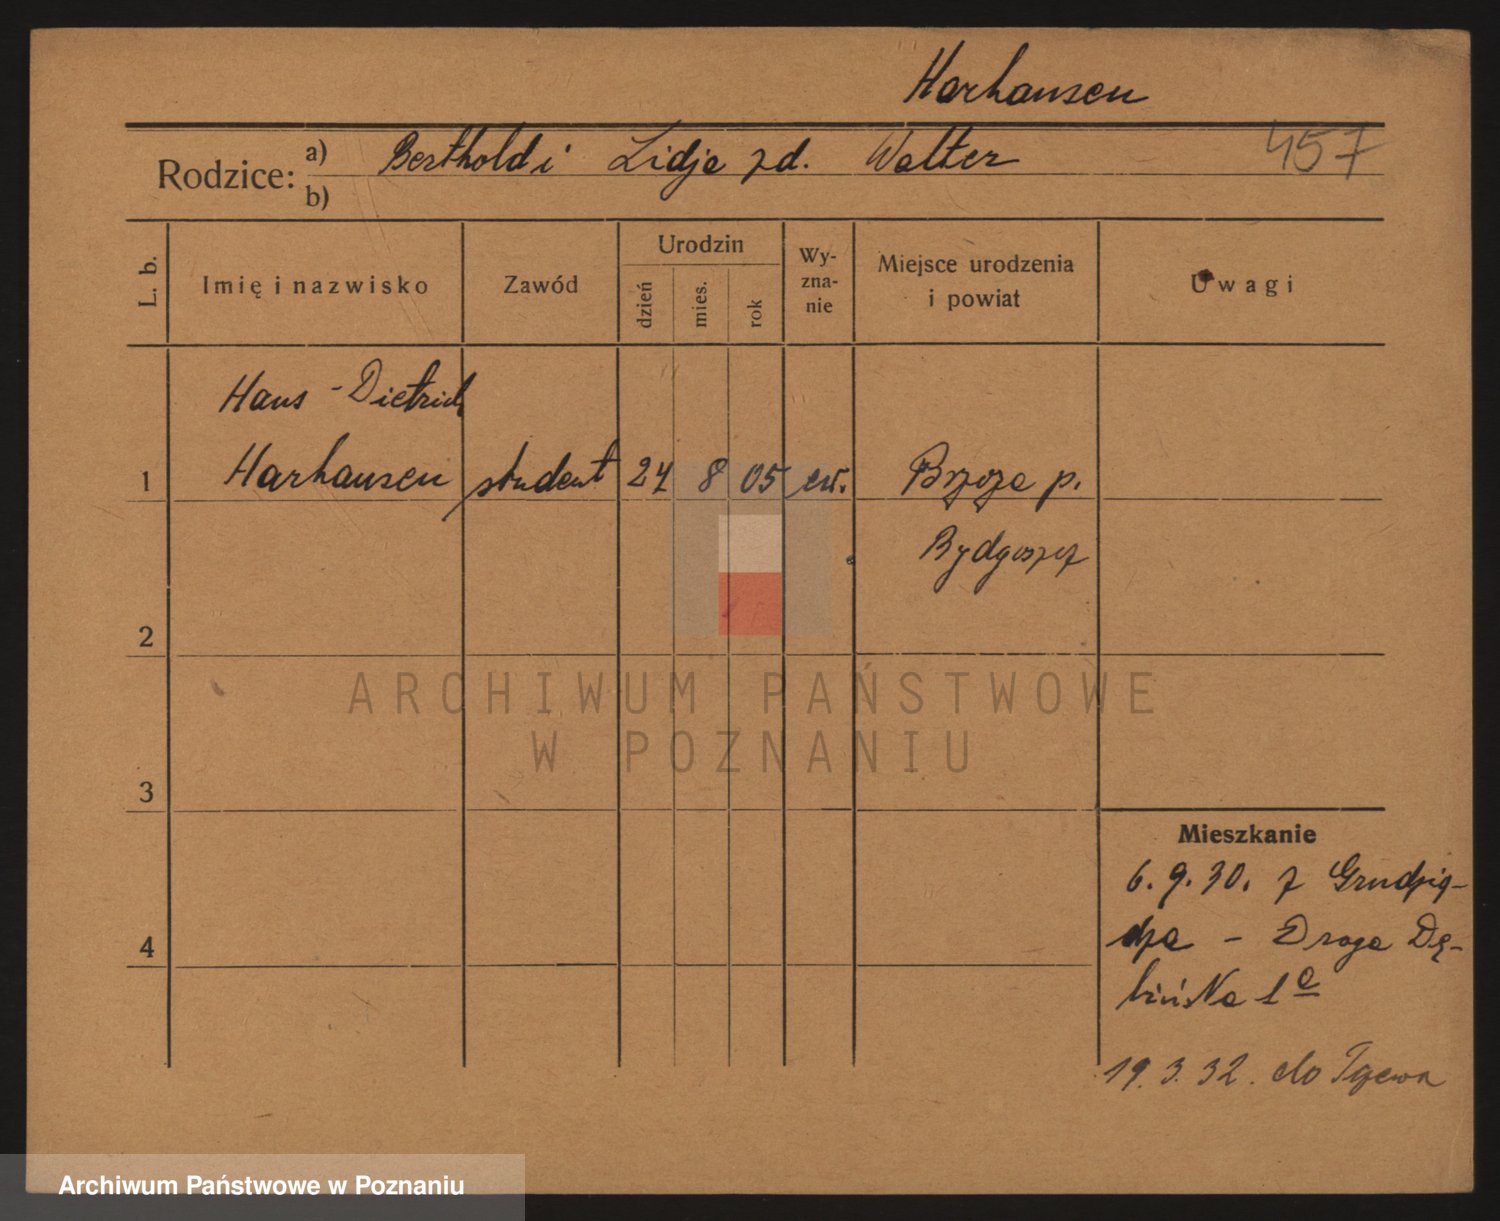 Harhausen
Rodzice: a) Berthold i Lidja zd. Walter 457
b)
L. b.
Imię i nazwisko
Zawód
Urodzin
dzień
mies.
rok
Wy-
zna-
nie
Miejsce urodzenia
i powiat
Uwagi
Hans - Dietrich
1 Harhausen student 24 8 05 ew. Brzoza p.
Bydgoszcz
2
ARCHIWUM PAŃSTWOWE
W POZNANIU
3
Mieszkanie
6. 9. 30. z Grudzią-
dza - Droga Dę-
4
bińska 1a
19. 3. 32. do
Archiwum Państwowe w Poznaniu